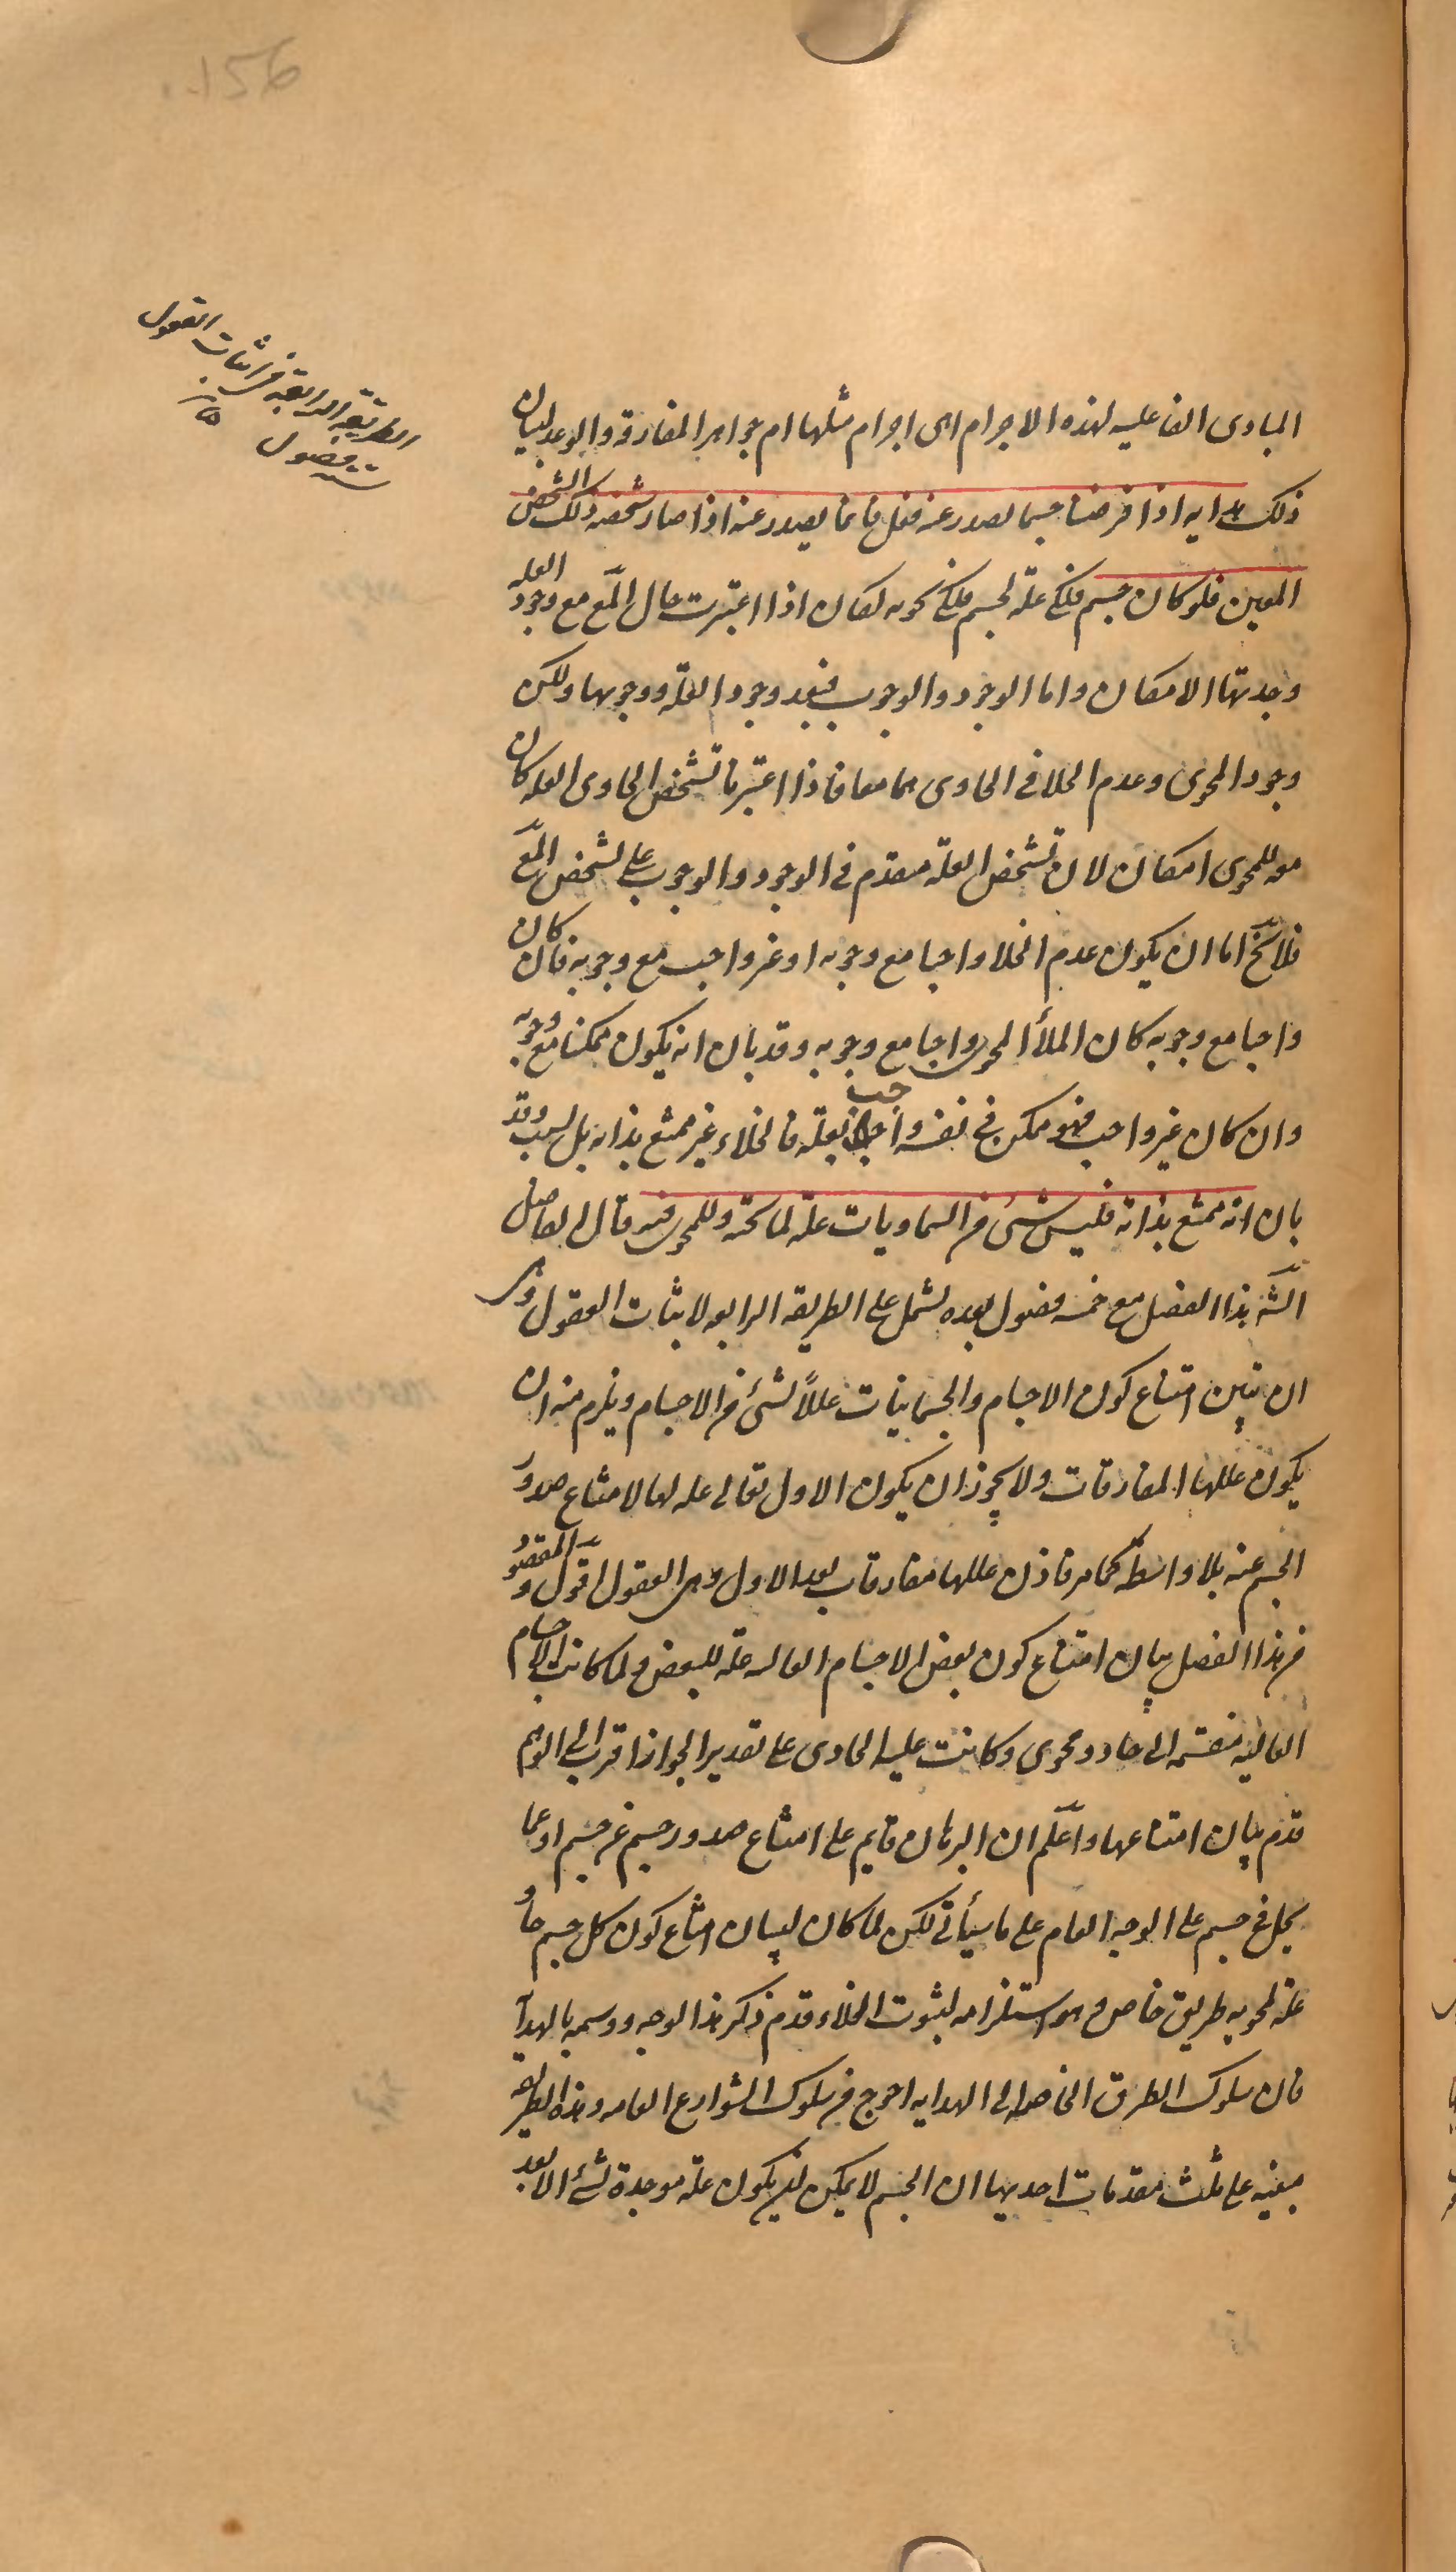 .156
الطريقة الرابعة في اثبات العقول
ستة فصول
المبادى الفاعلية لهذه الاجرام اهى اجرام مثلها ام جواهر المفارقة والوعد لبيان
ذلك هداية اذا فرضنا جسما يصدر عنه فعل فانما يصدر عنه اذا صار شخصه ذلك الشخص
المعين فلو كان جسم فلكى علة لجسم فلكى يحويه لكان اذا اعتبرت حال المع مع وجود العلة
وجدتها الامكان واما الوجود والوجوب فبعد وجود العلة ووجوبها ولكن
وجود المحوى وعدم الخلا فى الحاوى هما معا فاذا اعتبرنا تشخص الحاوى العلة كان
معه للمحوى امكان لان تشخص العلة متقدم فى الوجود والوجوب على تشخص المع
فلا يخ اما ان يكون عدم الخلا واجبا مع وجوبه او غير واجب مع وجوبه فان كان
واجبا مع وجوبه كان الملأ المحوى واجبا مع وجوبه وقد بان انه يكون ممكنا مع وجوبه
وان كان غير واجب فهو ممكن فى نفسه واجب بعلة فالخلاء غير ممتنع بذاته بل بسبب وقد
بان انه ممتنع بذاته فليس شىء من السماويات علة لما تحته وللمحوى فيه قال الفاضل
الشه هذا الفصل مع خمسة فصول بعده يشمل على الطريقة الرابعة لاثبات العقول وهى
ان نبين امتناع كون الاجسام والجسمانيات عللاً لشئ من الاجسام ويلزم منه ان
يكون عللها المفارقات ولا يجوز ان يكون الاول تعالى علة لها لامتناع صدور
الجسم عنه بلا واسطة كما مر فاذن عللها مفارقات بعد الاول وهى العقول اقول والمقصود
من هذا الفصل بيان امتناع كون بعض الاجسام العالية علة للبعض ولما كانت الاجسام
العالية منقسمة الى حاو ومحوى وكانت علية الحاوى على تقدير الجواز اقرب الى الوهم
قدم بيان امتناعها واعلم ان البرهان قايم على امتناع صدور جسم عن جسم او عما
يحل فى جسم على الوجه العام على ما سيأتى لكن لما كان لبيان امتناع كون كل جسم حاو
علة لمحويه طريق خاص وهو استلزامه لثبوت الخلاء قدم ذكر هذا الوجه ووسمه بالهداية
فان سلوك الطرق الخاصة الى الهداية احوج من سلوك الشوارع العامة وهذه الطريقة
مبنية على ثلث مقدمات احديها ان الجسم لا يمكن ان يكون علة موجدة لشئ الا بعد